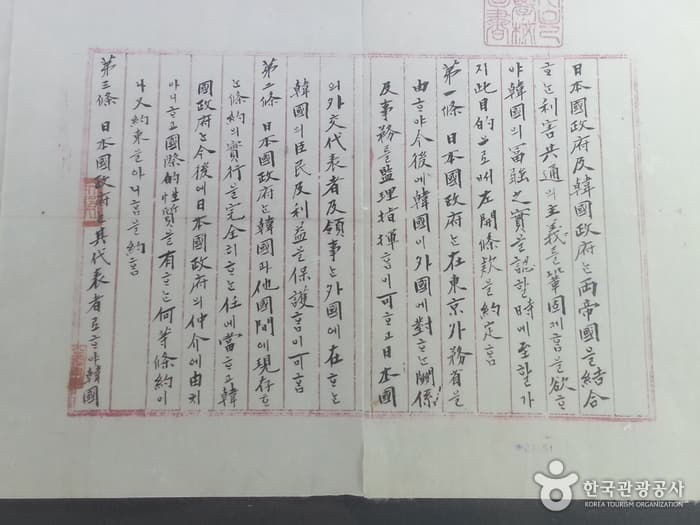 日本國政府及韓國政府는 両帝國을 結合
ᄒᆞ는 利害共通의 主義를 鞏固케 ᄒᆞᆷ을 欲ᄒᆞ
야 韓國의 富强之實을 認ᄒᆞᆯ 時에 至ᄒᆞᆯ가
지 此目的으로써 左開條款을 約定ᄒᆞᆷ
第一條 日本國政府는 在東京外務省을
由ᄒᆞ야 今後에 韓國이 外國에 對ᄒᆞ는 關係
及事務를 監理指揮ᄒᆞᆷ이 可ᄒᆞ고 日本國
의 外交代表者及領事는 外國에 在ᄒᆞ는
韓國의 臣民及利益을 保護ᄒᆞᆷ이 可ᄒᆞᆷ
第二條 日本國政府는 韓國과 他國間에 現存ᄒᆞ
는 條約의 實行을 完全히 ᄒᆞ는 任에 當ᄒᆞ고 韓
國政府는 今後에 日本國政府의 仲介에 由치
아니ᄒᆞ고 國際的性質을 有ᄒᆞ는 何等條約이
나 又約束을 아니ᄒᆞᆷ을 約ᄒᆞᆷ
第三條 日本國政府는 其代表者로 ᄒᆞ야 韓國
한국관광공사
KOREA TOURISM ORGANIZATION